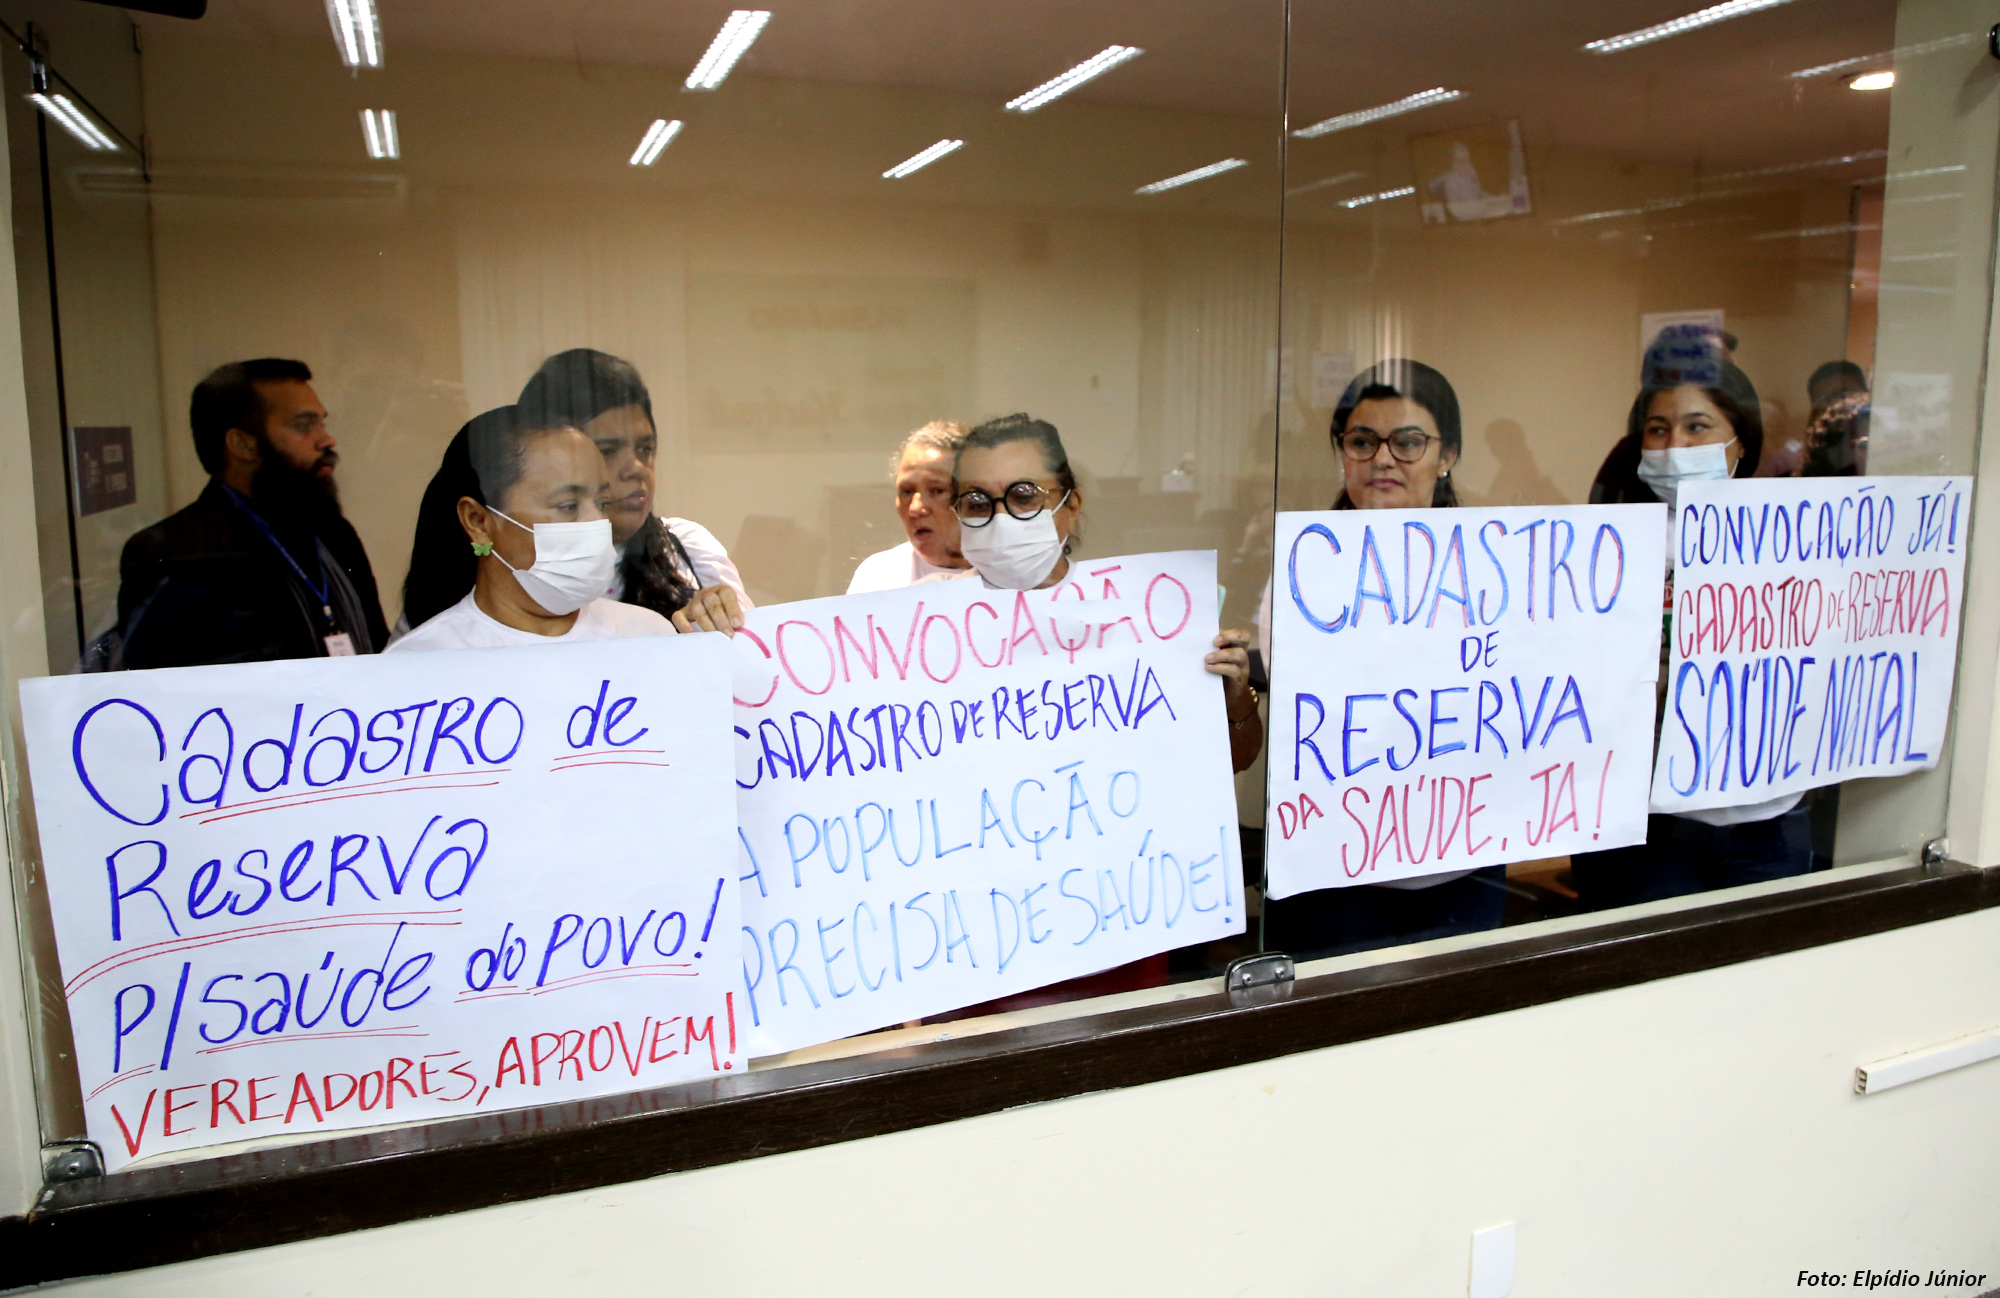 Cadastro de
Reserva
P/saúde do povo!
VEREADORES, APROVEM!
CONVOCAÇÃO
CADASTRO DE RESERVA
A POPULAÇÃO
PRECISA DE SAÚDE!
CADASTRO
DE
RESERVA
DA SAÚDE, JA!
CONVOCAÇÃO JÁ!
CADASTRO DE RESERVA
SAÚDE NATAL
Foto: Elpídio Júnior